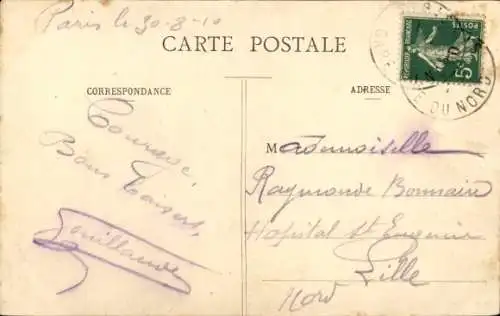 Paris le 30-8-10
CARTE POSTALE
CORRESPONDANCE
ADRESSE
POSTES
5
DU NORD
Courage,
Bons baisers,
Mademoiselle
Raymonde Bonnaire
Hopital St Eugenie
Lille
Nord